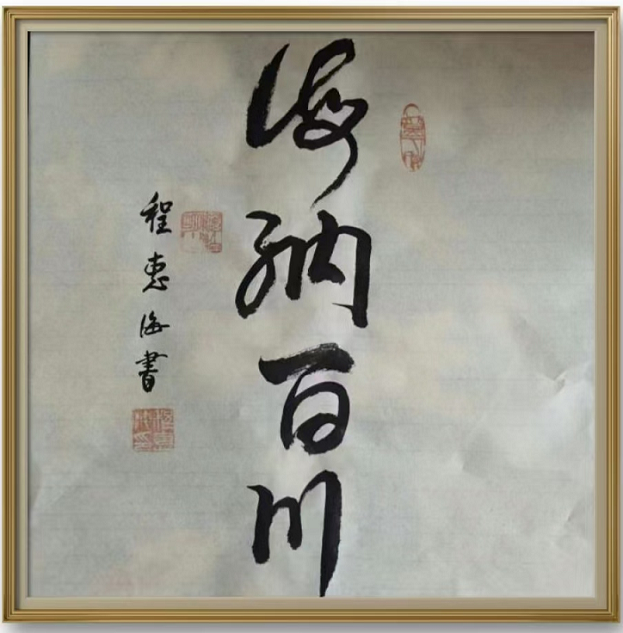 海纳百川
程惠海書